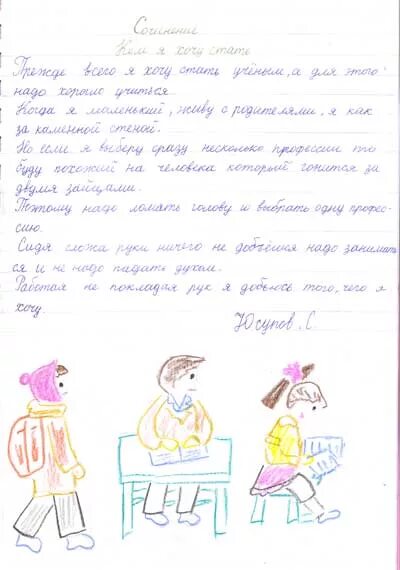 Сочинение
Кем я хочу стать
Прежде всего я хочу стать учёным, а для этого
надо хорошо учиться
Когда я маленький, живу с родителями, я как
за каменной стеной.
Но если я выберу сразу несколько профессии то
буду похожий на человека который гонится за
двумя зайцами.
Поэтому надо ломать голову и выбрать одну профес-
сию.
Сидя сложа руки ничего не добьёшся надо занимать
ся и не надо падать духом.
Работая не покладая рук я добьюсь того, чего я
хочу.
Юсупов. С.